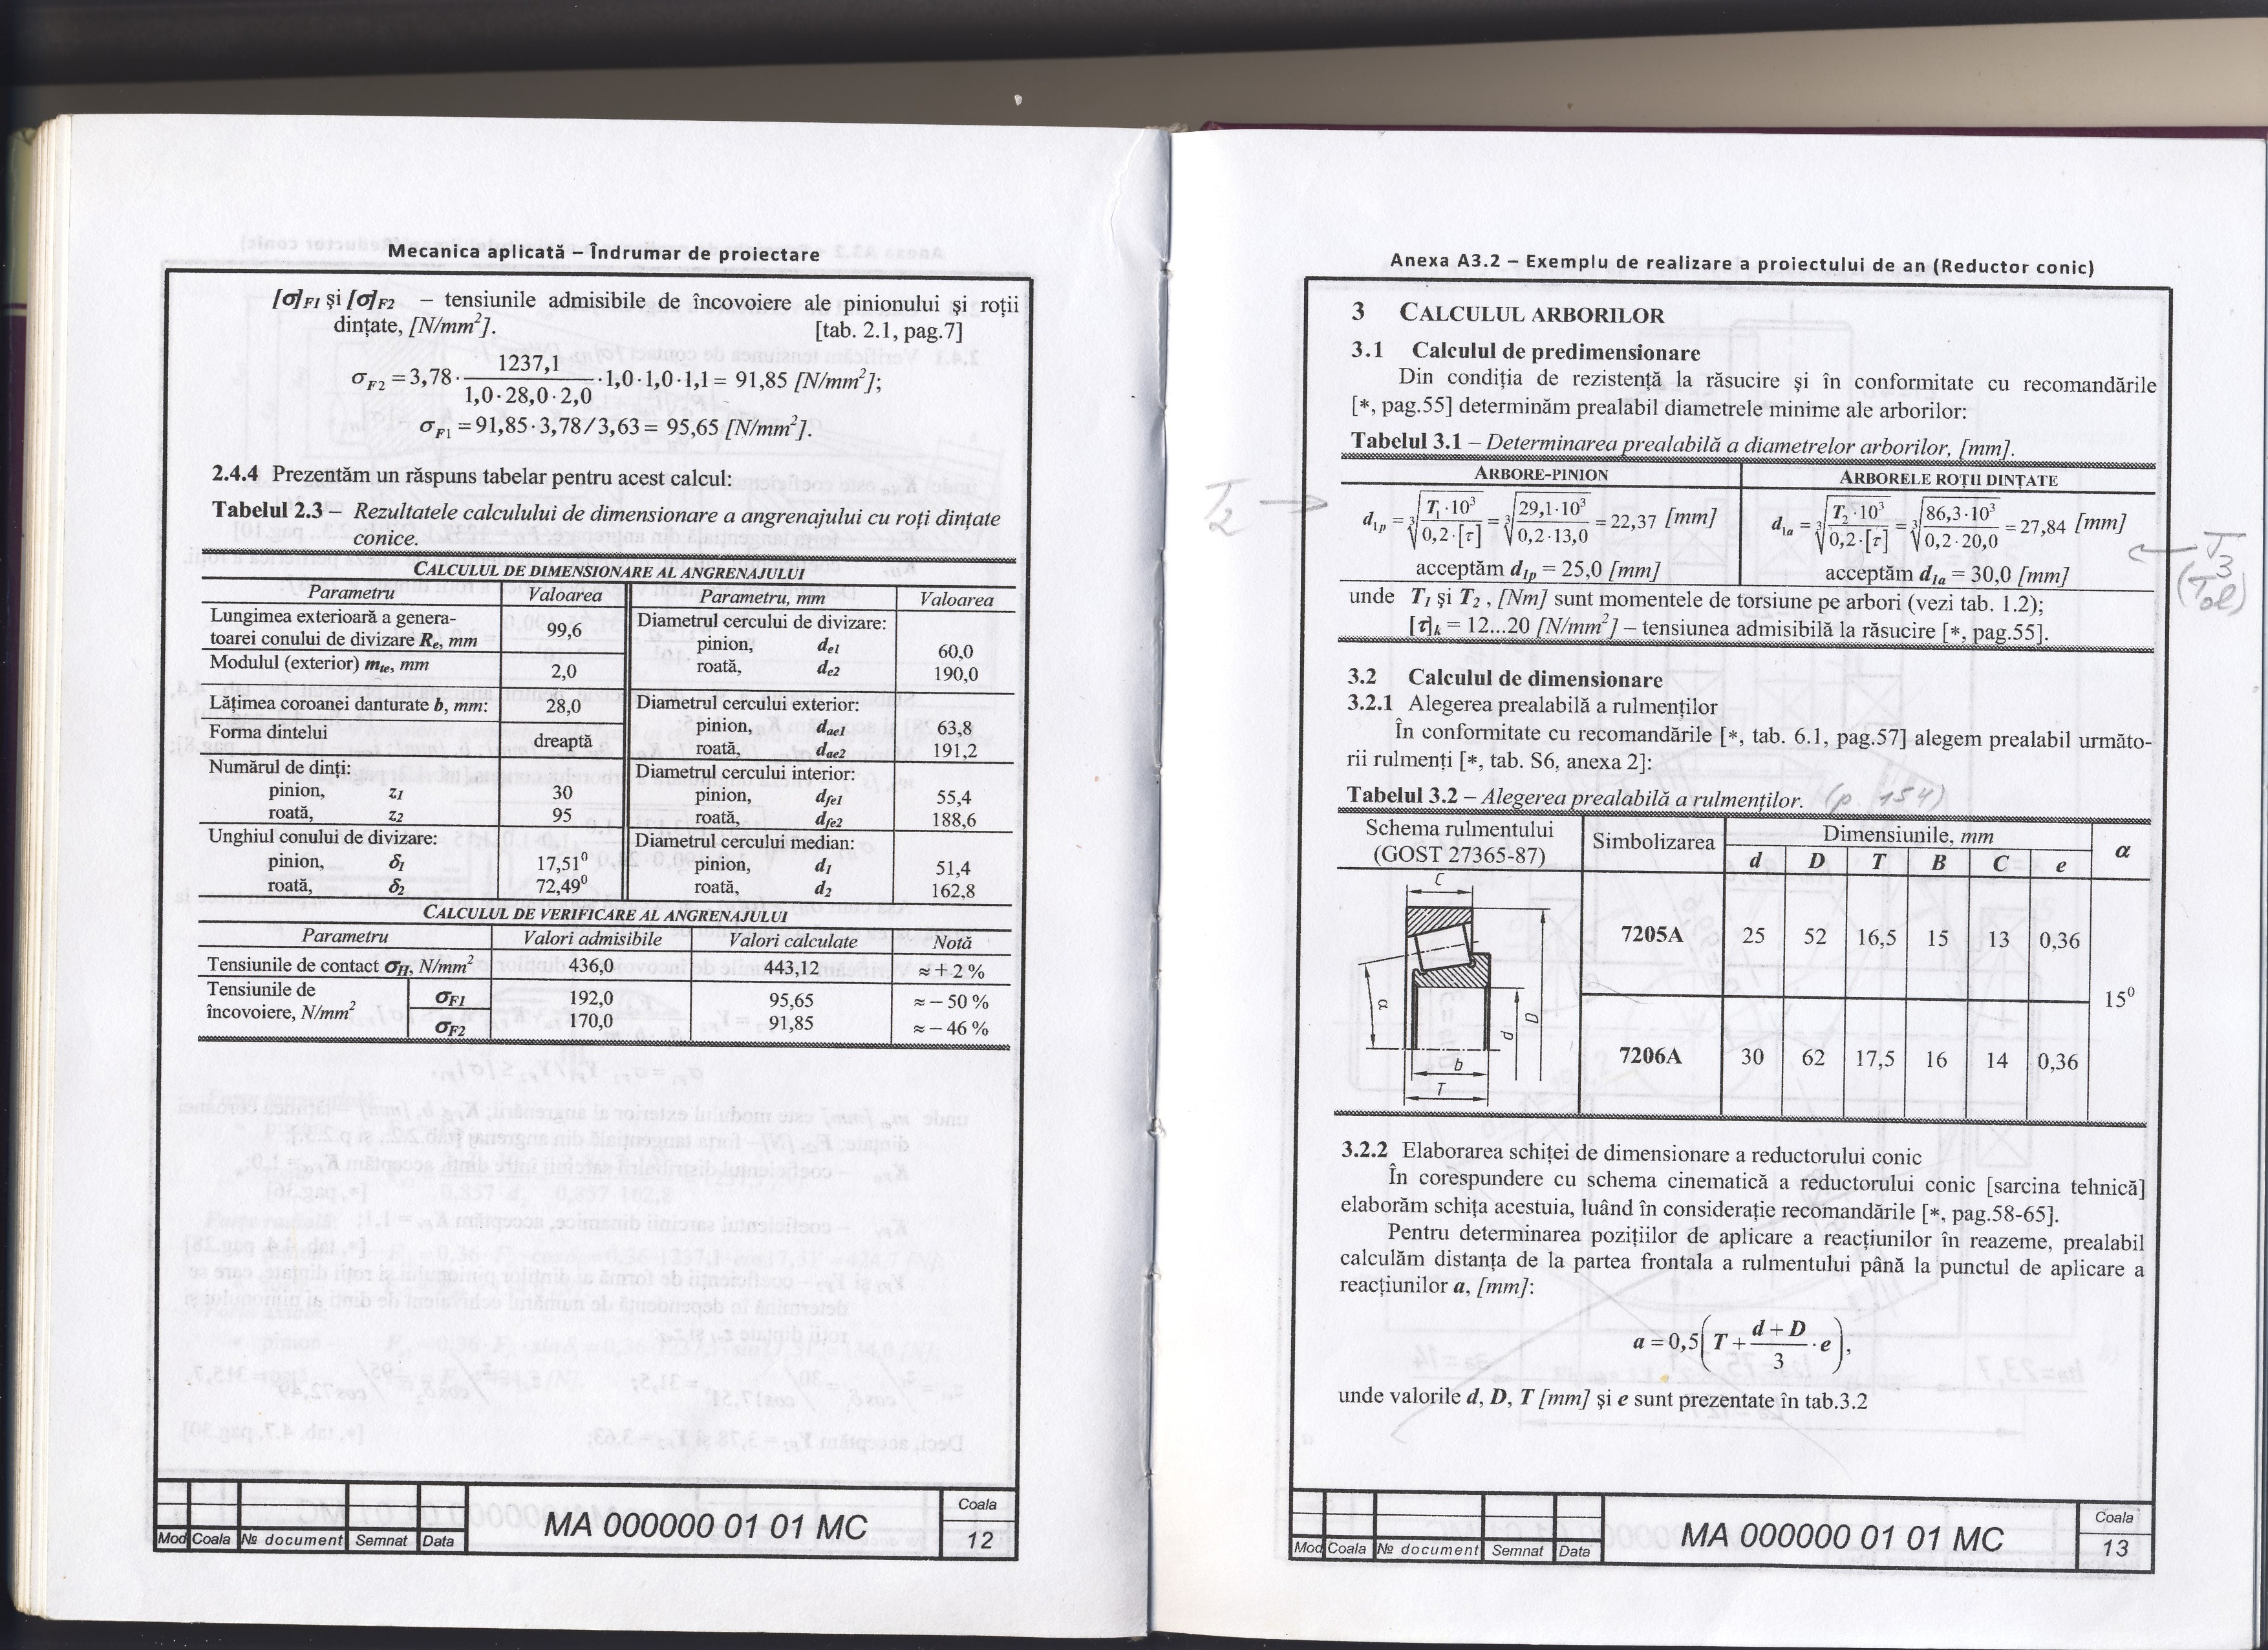 Mecanica aplicată – Îndrumar de proiectare
[σ]F1 şi [σ]F2 – tensiunile admisibile de încovoiere ale pinionului şi roţii
dinţate, [N/mm²]. [tab. 2.1, pag.7]
σF2 = 3,78 · 1237,1 / (1,0 · 28,0 · 2,0) · 1,0 · 1,0 · 1,1 = 91,85 [N/mm²];
σF1 = 91,85 · 3,78 / 3,63 = 95,65 [N/mm²].
2.4.4 Prezentăm un răspuns tabelar pentru acest calcul:
Tabelul 2.3 – Rezultatele calculului de dimensionare a angrenajului cu roţi dinţate
conice.
CALCULUL DE DIMENSIONARE AL ANGRENAJULUI
Parametru Valoarea Parametru, mm Valoarea
Lungimea exterioară a genera-
toarei conului de divizare Re, mm 99,6
Diametrul cercului de divizare:
pinion, de1 60,0
roată, de2 190,0
Modulul (exterior) mte, mm 2,0
Lăţimea coroanei danturate b, mm: 28,0
Diametrul cercului exterior:
pinion, dae1 63,8
roată, dae2 191,2
Forma dintelui dreaptă
Numărul de dinţi:
pinion, z1 30
roată, z2 95
Diametrul cercului interior:
pinion, dfe1 55,4
roată, dfe2 188,6
Unghiul conului de divizare:
pinion, δ1 17,51⁰
roată, δ2 72,49⁰
Diametrul cercului median:
pinion, d1 51,4
roată, d2 162,8
CALCULUL DE VERIFICARE AL ANGRENAJULUI
Parametru Valori admisibile Valori calculate Notă
Tensiunile de contact σH, N/mm² 436,0 443,12 ≈ + 2 %
Tensiunile de
încovoiere, N/mm²
σF1 192,0 95,65 ≈ – 50 %
σF2 170,0 91,85 ≈ – 46 %
Mod Coala № document Semnat Data
MA 000000 01 01 MC
Coala
12
Anexa A3.2 – Exemplu de realizare a proiectului de an (Reductor conic)
3 CALCULUL ARBORILOR
3.1 Calculul de predimensionare
Din condiţia de rezistenţă la răsucire şi în conformitate cu recomandările
[*, pag.55] determinăm prealabil diametrele minime ale arborilor:
Tabelul 3.1 – Determinarea prealabilă a diametrelor arborilor, [mm].
ARBORE-PINION ARBORELE ROŢII DINŢATE
T2 →
d1p = ∛(T1·10³ / 0,2·[τ]) = ∛(29,1·10³ / 0,2·13,0) = 22,37 [mm]
d1a = ∛(T2·10³ / 0,2·[τ]) = ∛(86,3·10³ / 0,2·20,0) = 27,84 [mm]
← T3
acceptăm d1p = 25,0 [mm] acceptăm d1a = 30,0 [mm]
unde T1 şi T2 , [Nm] sunt momentele de torsiune pe arbori (vezi tab. 1.2);
[τ]k = 12...20 [N/mm²] – tensiunea admisibilă la răsucire [*, pag.55].
3.2 Calculul de dimensionare
3.2.1 Alegerea prealabilă a rulmenţilor
În conformitate cu recomandările [*, tab. 6.1, pag.57] alegem prealabil următo-
rii rulmenţi [*, tab. S6, anexa 2]:
Tabelul 3.2 – Alegerea prealabilă a rulmenţilor. (p. 154)
Schema rulmentului
(GOST 27365-87)
Simbolizarea
Dimensiunile, mm
α
d D T B C e
7205A 25 52 16,5 15 13 0,36
15⁰
7206A 30 62 17,5 16 14 0,36
C
α
d
D
b
T
3.2.2 Elaborarea schiţei de dimensionare a reductorului conic
În corespundere cu schema cinematică a reductorului conic [sarcina tehnică]
elaborăm schiţa acestuia, luând în consideraţie recomandările [*, pag.58-65].
Pentru determinarea poziţiilor de aplicare a reacţiunilor în reazeme, prealabil
calculăm distanţa de la partea frontala a rulmentului până la punctul de aplicare a
reacţiunilor a, [mm]:
a = 0,5(T + (d + D)/3 · e),
unde valorile d, D, T [mm] şi e sunt prezentate în tab.3.2
Mod Coala № document Semnat Data
MA 000000 01 01 MC
Coala
13